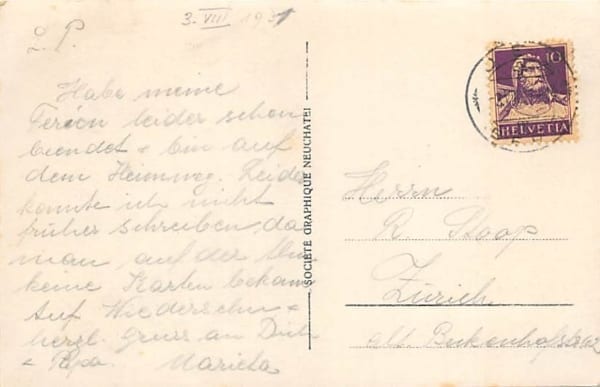 3. VIII 1931
L. P.
Habe meine
Ferien leider schon
beendet + bin auf
dem Heimweg. Leider
konnte ich nicht
früher schreiben, da
man auf der Alm
keine Karten bekam.
Auf Wiedersehn +
herzl. Gruss an Dich
+ Papa. Marieta
SOCIÉTÉ GRAPHIQUE NEUCHATEL
10
HELVETIA
Herrn
R. Stoop
Zürich
alt. Beckenhofstr.